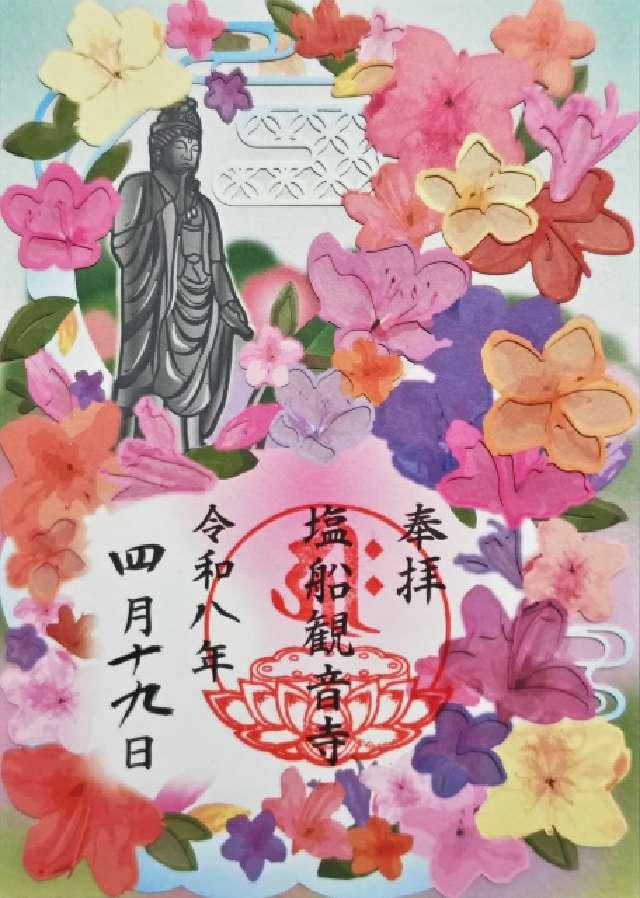 奉拝
塩船観音寺
令和八年
四月十九日